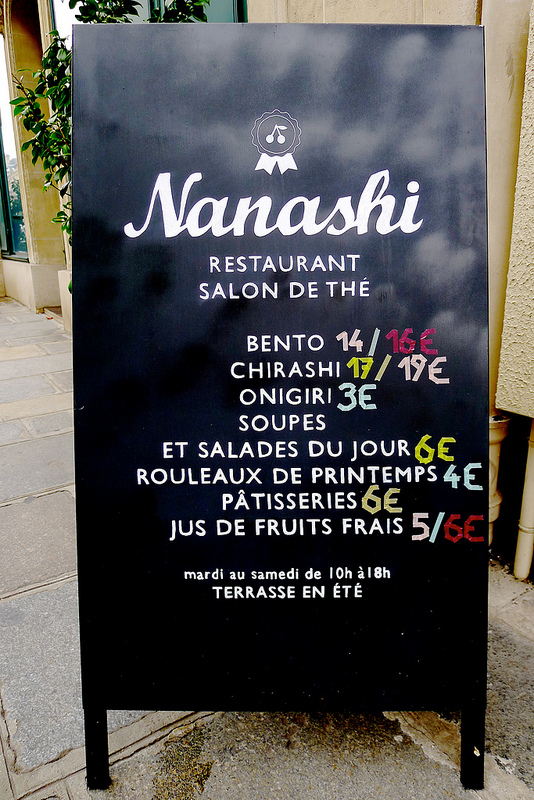 Nanashi
RESTAURANT
SALON DE THÉ
BENTO 14/16€
CHIRASHI 17/19€
ONIGIRI 3€
SOUPES
ET SALADES DU JOUR 6€
ROULEAUX DE PRINTEMPS 4€
PÂTISSERIES 6€
JUS DE FRUITS FRAIS 5/6€
mardi au samedi de 10h à 18h
TERRASSE EN ÉTÉ